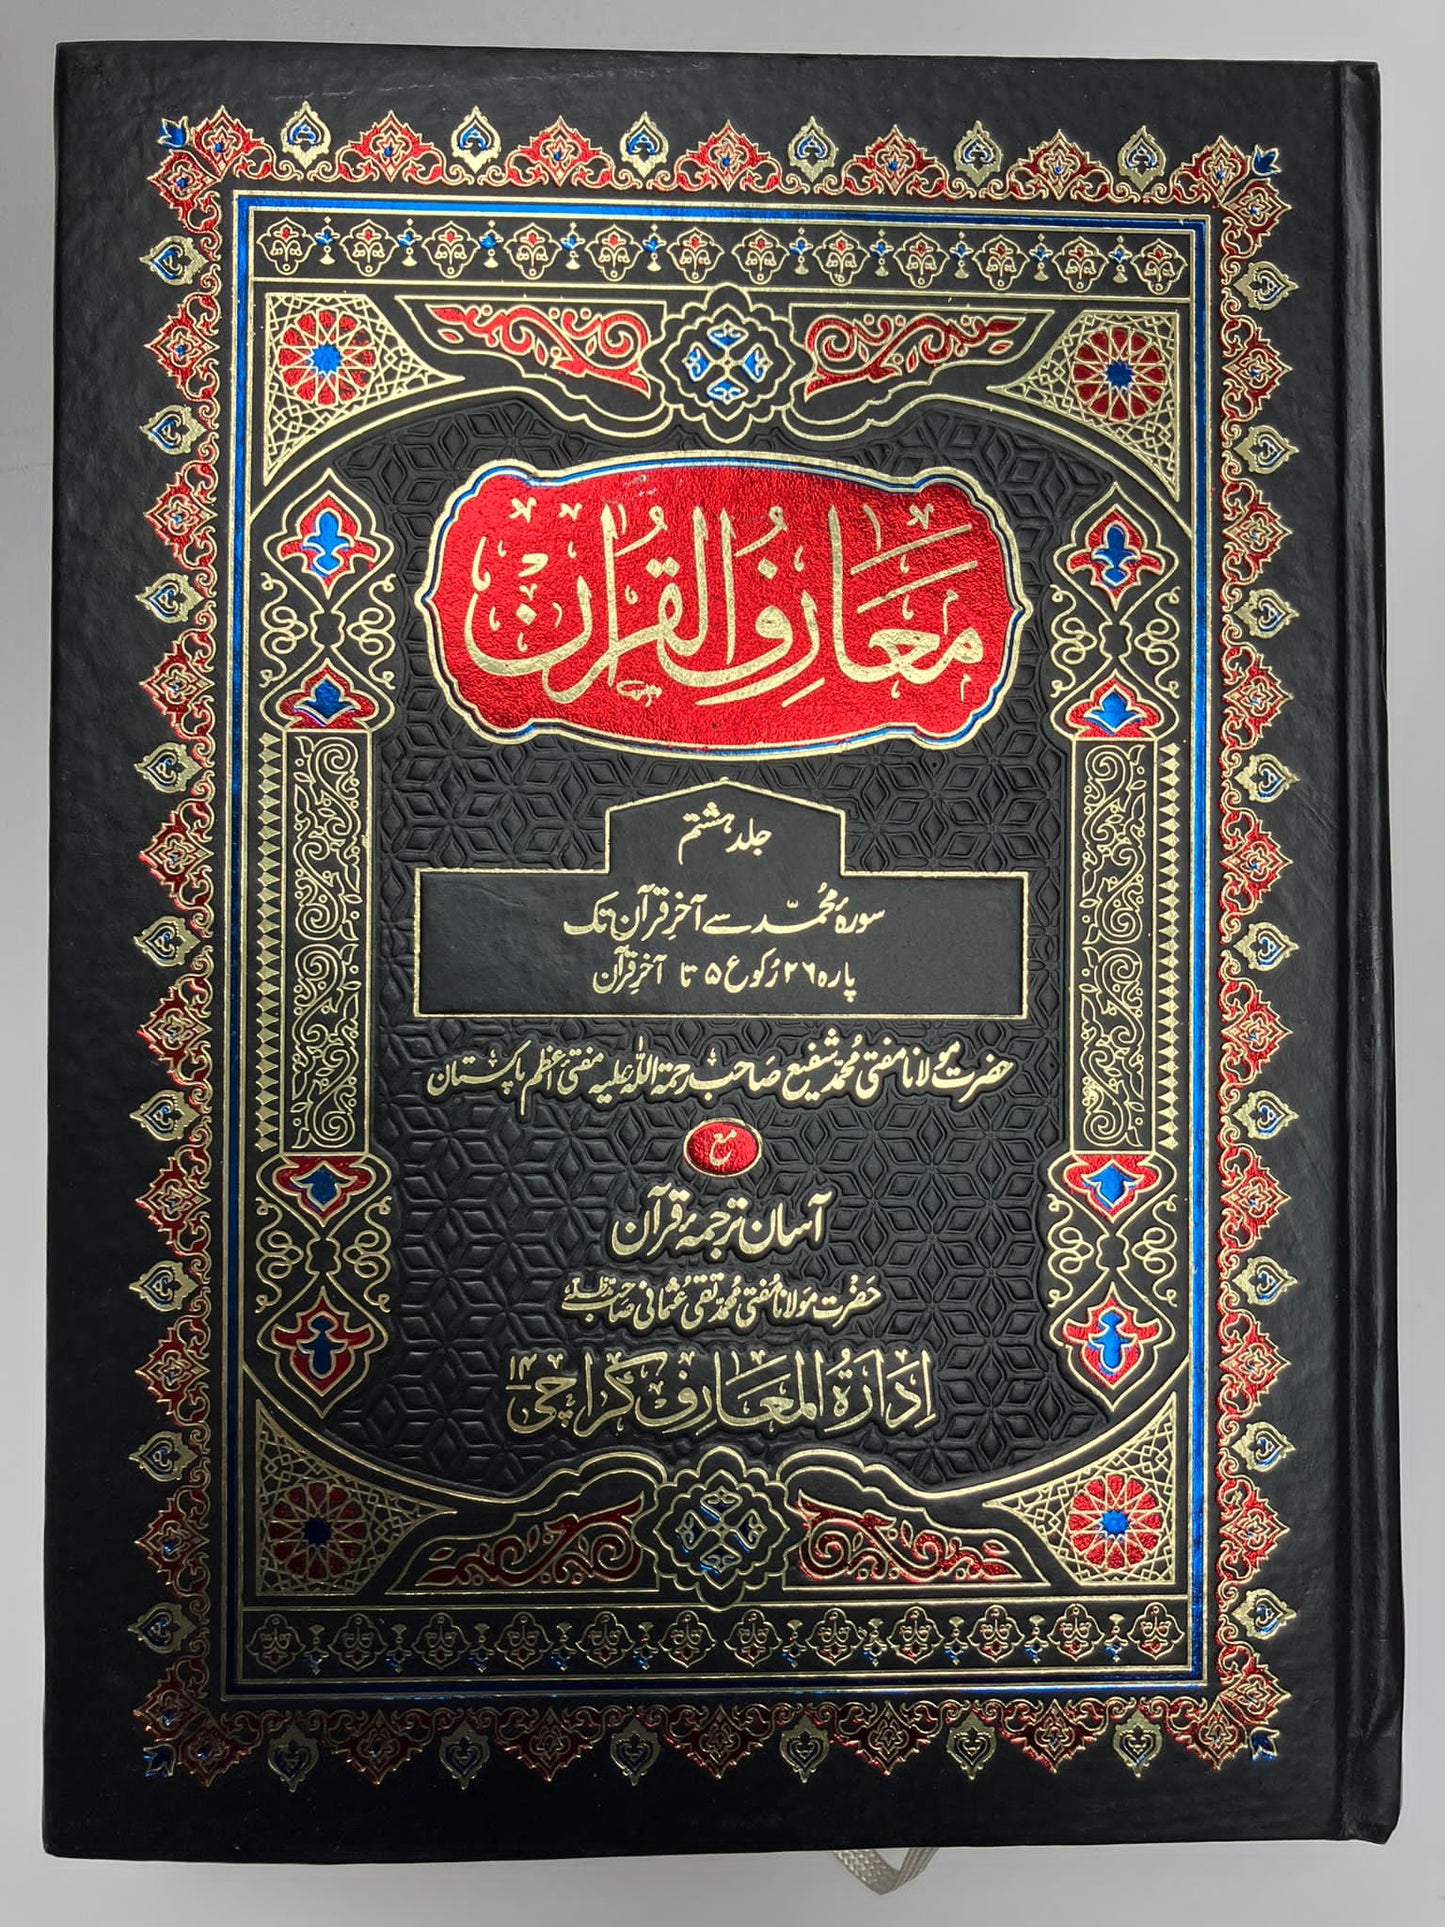 معارف القرآن
جلد ہشتم
سورۂ محمّد سے آخرِ قرآن تک
پارہ ۲۶ رُکوع ۵ تا آخرِ قرآن
حضرت مولانا مفتی محمّد شفیع صاحب رحمۃ اللہ علیہ مفتیٔ اعظم پاکستان
مع
آسان ترجمۂ قرآن
حضرت مولانا مفتی محمّد تقی عثمانی صاحب مدظلہم
ادارۃ المعارف کراچی ۱۴